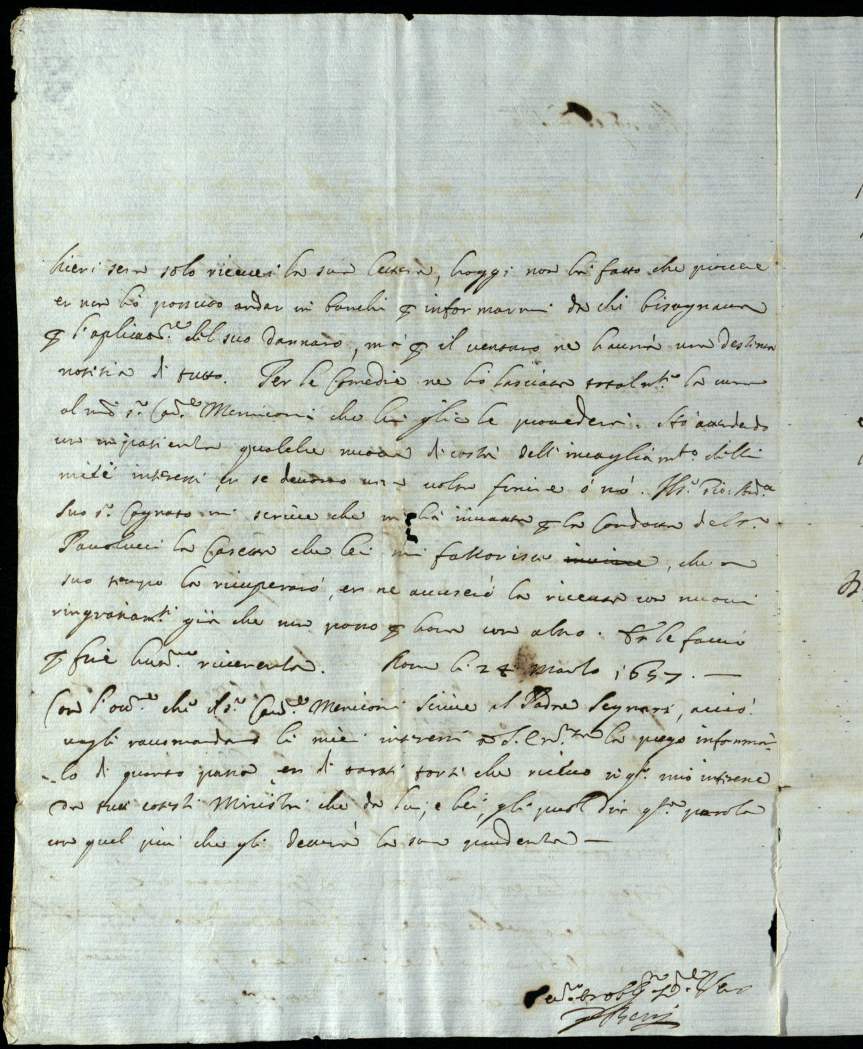 hieri sera solo riceuei la sua lettera, hoggi non hà fatto che piouere
et non hò possuto andar in banchi p informarmi da chi bisognaua
p l'aplicaone del suo dannaro, mà p il venturo ne haurà una destinta
notitia di tutto. Per le Comedie ne hò lasciata totalmte la cura
al sr Caure Menniconi che lui glie le prouederà. Stò attendendo
con inpatienza qualche nuoua di costà dell'incagliamto delli
miei interessi, et se deuono una uolta finire ò nò. Il
Suo sr Cognato mi scriue che mi hà inuiata p la Condotta del sr
Pauolucci la Cassetta che lei mi fattorisce, che a
suo tempo la ricuperarò, et ne accuserò la riceuuta con nuoui
ringratiamti già che non posso p hora con altro. Et le faccio
p fine riuerenza. Roma li 24 Marzo 1657. —
Con l'occne che il sr Caure Menniconi scriue al Padre Segnari, acciò
uogli raccomandare li miei interessi a S. la prego informar-
lo di quanto passa, et di tanti torti che riceuo in qsto mio interesse
da tutti cotesti Ministri che da lui, e lei, gli puol dir qsta parola
con quel più che gli detterà la sua prudenza —